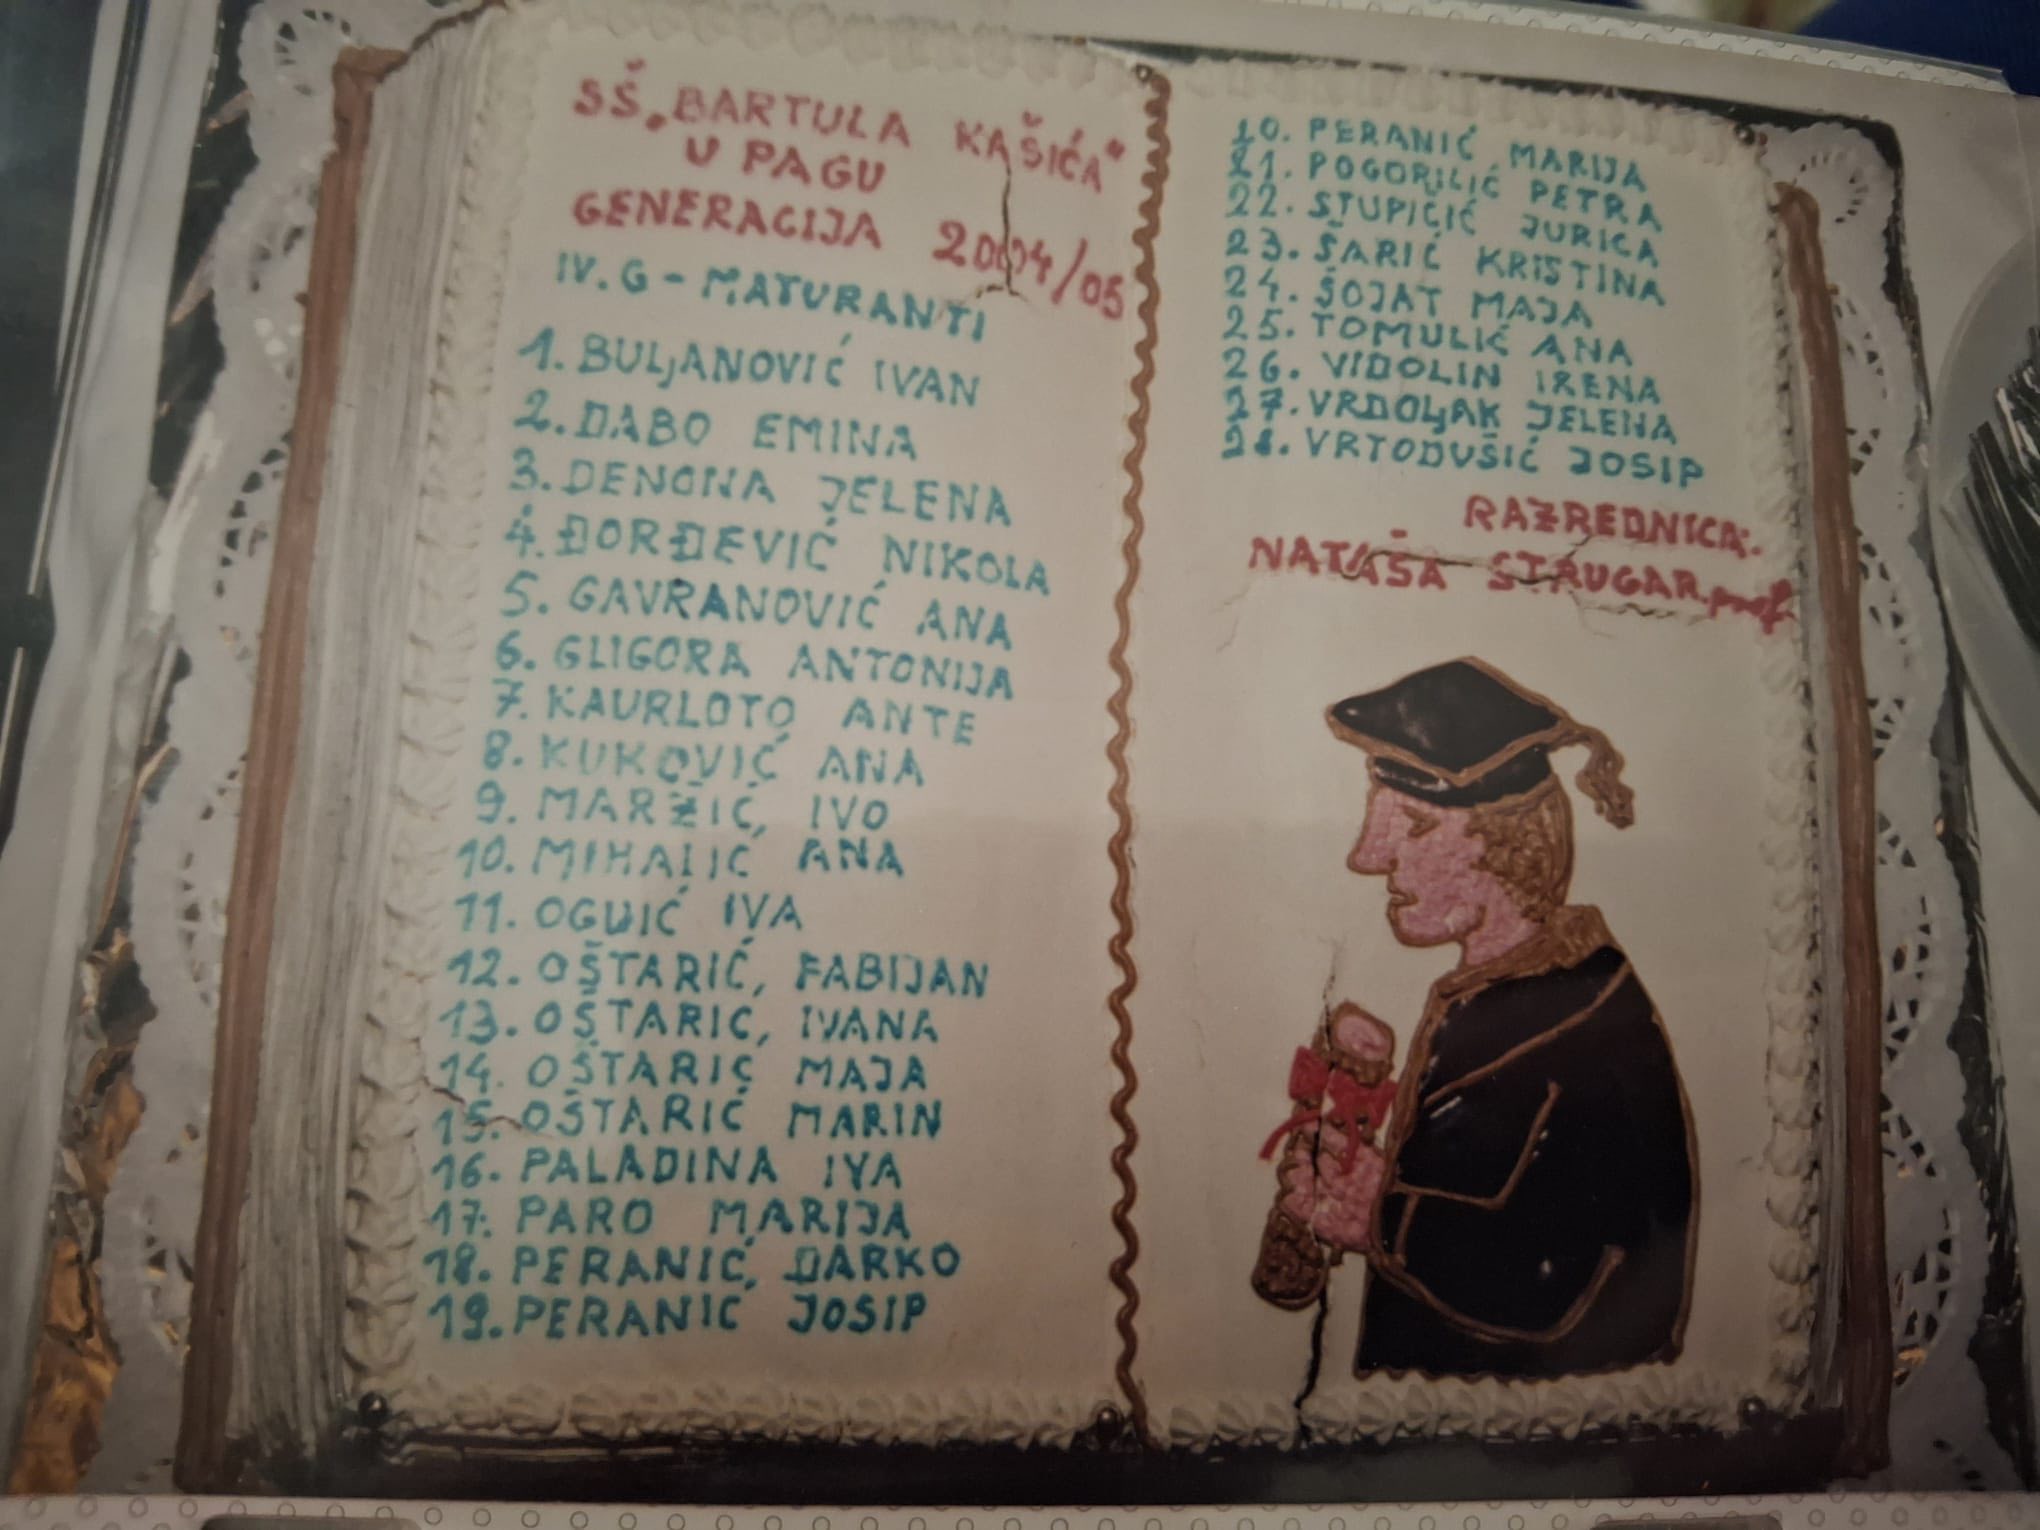 SŠ „BARTULA KAŠIĆA"
U PAGU
GENERACIJA 2004/05
IV. G - MATURANTI
1. BULJANOVIĆ IVAN
2. DABO EMINA
3. DENONA JELENA
4. ĐORĐEVIĆ NIKOLA
5. GAVRANOVIĆ ANA
6. GLIGORA ANTONIJA
7. KAURLOTO ANTE
8. KUKOVIĆ ANA
9. MARŽIĆ IVO
10. MIHALIĆ ANA
11. OGUIĆ IVA
12. OŠTARIĆ, FABIJAN
13. OŠTARIĆ, IVANA
14. OŠTARIĆ MAJA
15. OŠTARIĆ MARIN
16. PALADINA IVA
17. PARO MARIJA
18. PERANIĆ, DARKO
19. PERANIĆ JOSIP
20. PERANIĆ MARIJA
21. POGORILIĆ PETRA
22. STUPIČIĆ JURICA
23. ŠARIĆ KRISTINA
24. ŠOJAT MAJA
25. TOMULIĆ ANA
26. VIDOLIN IRENA
27. VRDOLJAK JELENA
28. VRTODUŠIĆ JOSIP
RAZREDNICA:
NATAŠA STRUGAR prof.